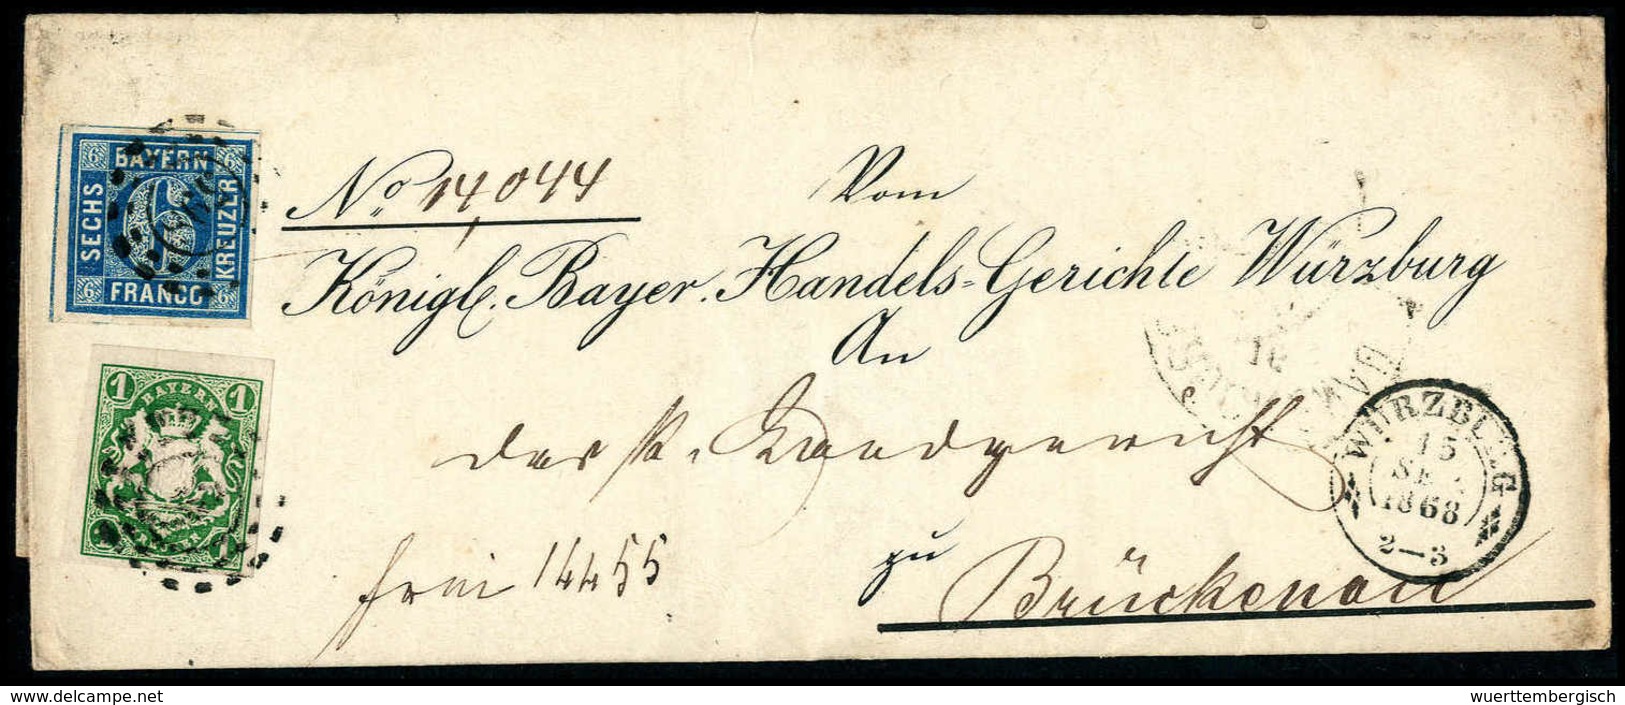 6 BAYERN 6
SECHS
6
KREUZER
6 FRANCO 6
1 BAYERN 1
1 BAYERN 1
No. 14,044
Vom
Königl. Bayer. Handels-Gerichte Würzburg
An
das k. Landgericht
frei 14455
zu
Brückenau
WÜRZBURG
15
SEP.
1868
2-3
16
delcampe.net
wuerttembergisch